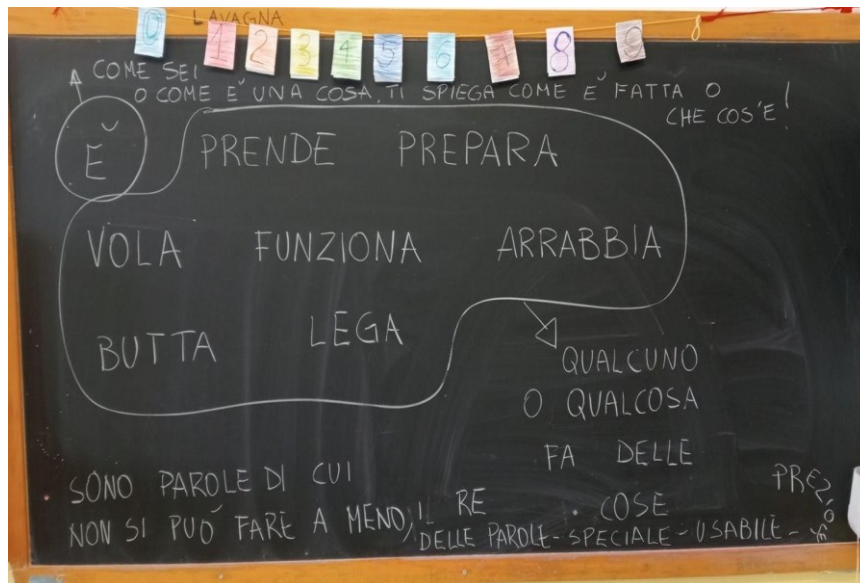 LAVAGNA
0 1 2 3 4 5 6 7 8 9
COME SEI
O COME E' UNA COSA. TI SPIEGA COME E' FATTA O
CHE COS'E'!
È PRENDE PREPARA
VOLA FUNZIONA ARRABBIA
BUTTA LEGA
QUALCUNO
O QUALCOSA
FA DELLE
COSE
SONO PAROLE DI CUI
NON SI PUÒ FARE A MENO, IL RE
DELLE PAROLE - SPECIALE - USABILE -